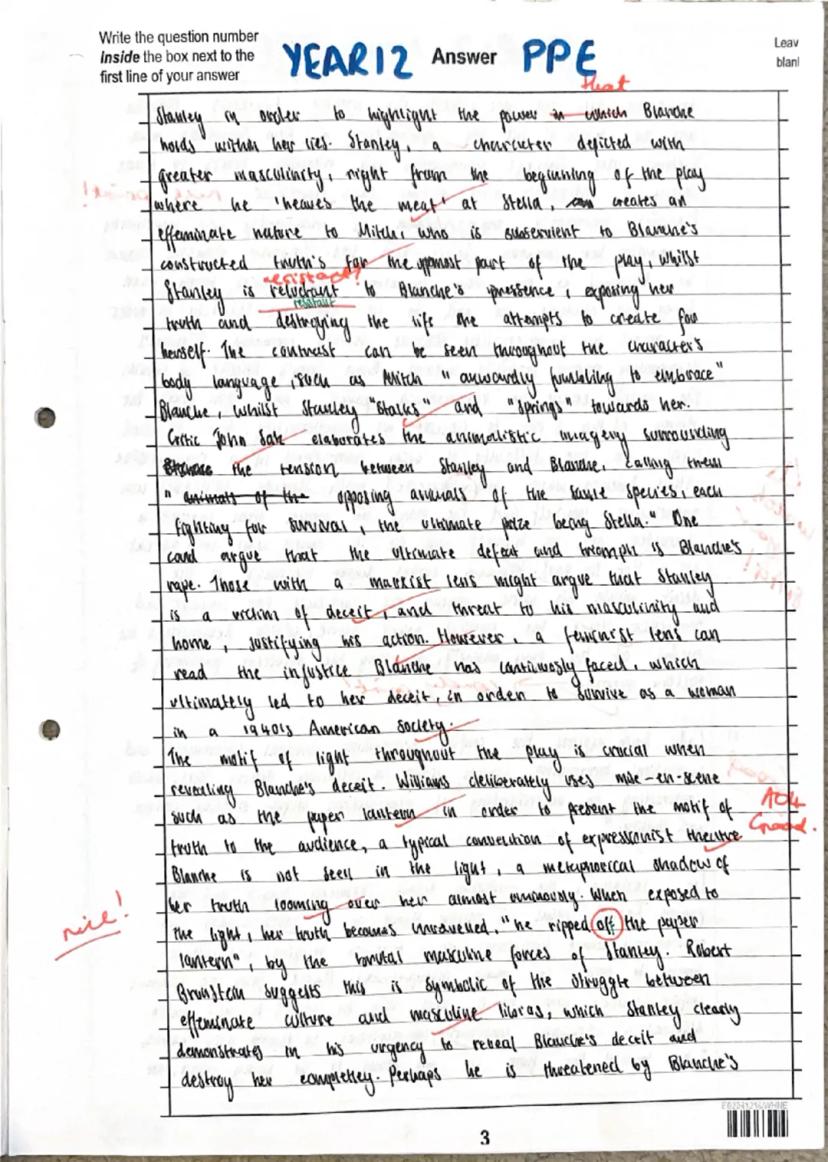 Write the question number
Inside the box next to the
first line of your answer
YEAR 12 Answer PPE
Leav
blank
that
Stanley in order to highlight the power in which Blanche
holds within her lies. Stanley, a character depicted with
greater masculinity, right from the beginning of the play
where he 'heaves the meat' at Stella, creates an
effeminate nature to Mitch, who is subservient to Blanche's
constructed truth's for the uppmost part of the play, whilst
resistant?
Stanley is reluctant to Blanche's pressence, exposing her
resistant
truth and destroying the life she attempts to create for
herself. The contrast can be seen throughout the character's
body language, such as Mitch "awkwardly fumbling to embrace"
Blanche, whilst Stanley "stalks" and "springs" towards her.
Critic John elaborates the animalistic imagery surrounding
Blanche the tension between Stanley and Blanche, calling them
" animals of the opposing animals of the same species, each
fighting for survival, the ultimate prize being Stella." One
could argue that the ultimate defeat and triumph is Blanche's
rape. Those with a marxist lens might argue that Stanley
is a victim of deceit, and threat to his masculinity and
home, justifying his action. However, a feminist lens can
read the injustice Blanche has continuosly faced, which
ultimately led to her deceit, in order to survive as a woman
in a 1940's American society.
The motif of light throughout the play is crucial when
revealing Blanche's deceit. Williams deliberately uses mise-en-scene
such as the paper lantern in order to present the motif of
AO4
Good.
truth to the audience, a typical convention of expressionist theatre.
Blanche is not seen in the light, a metaphorical shadow of
her truth looming over her almost ominously. When exposed to
nice!
the light, her truth becomes unravelled, "he ripped off the paper
lantern", by the brutal masculine forces of Stanley. Robert
Brunstein suggests this is symbolic of the struggle between
effeminate culture and masculine libras, which Stanley clearly
demonstrates in his urgency to reveal Blanche's deceit and
destroy her completley. Perhaps he is threatened by Blanche's
3